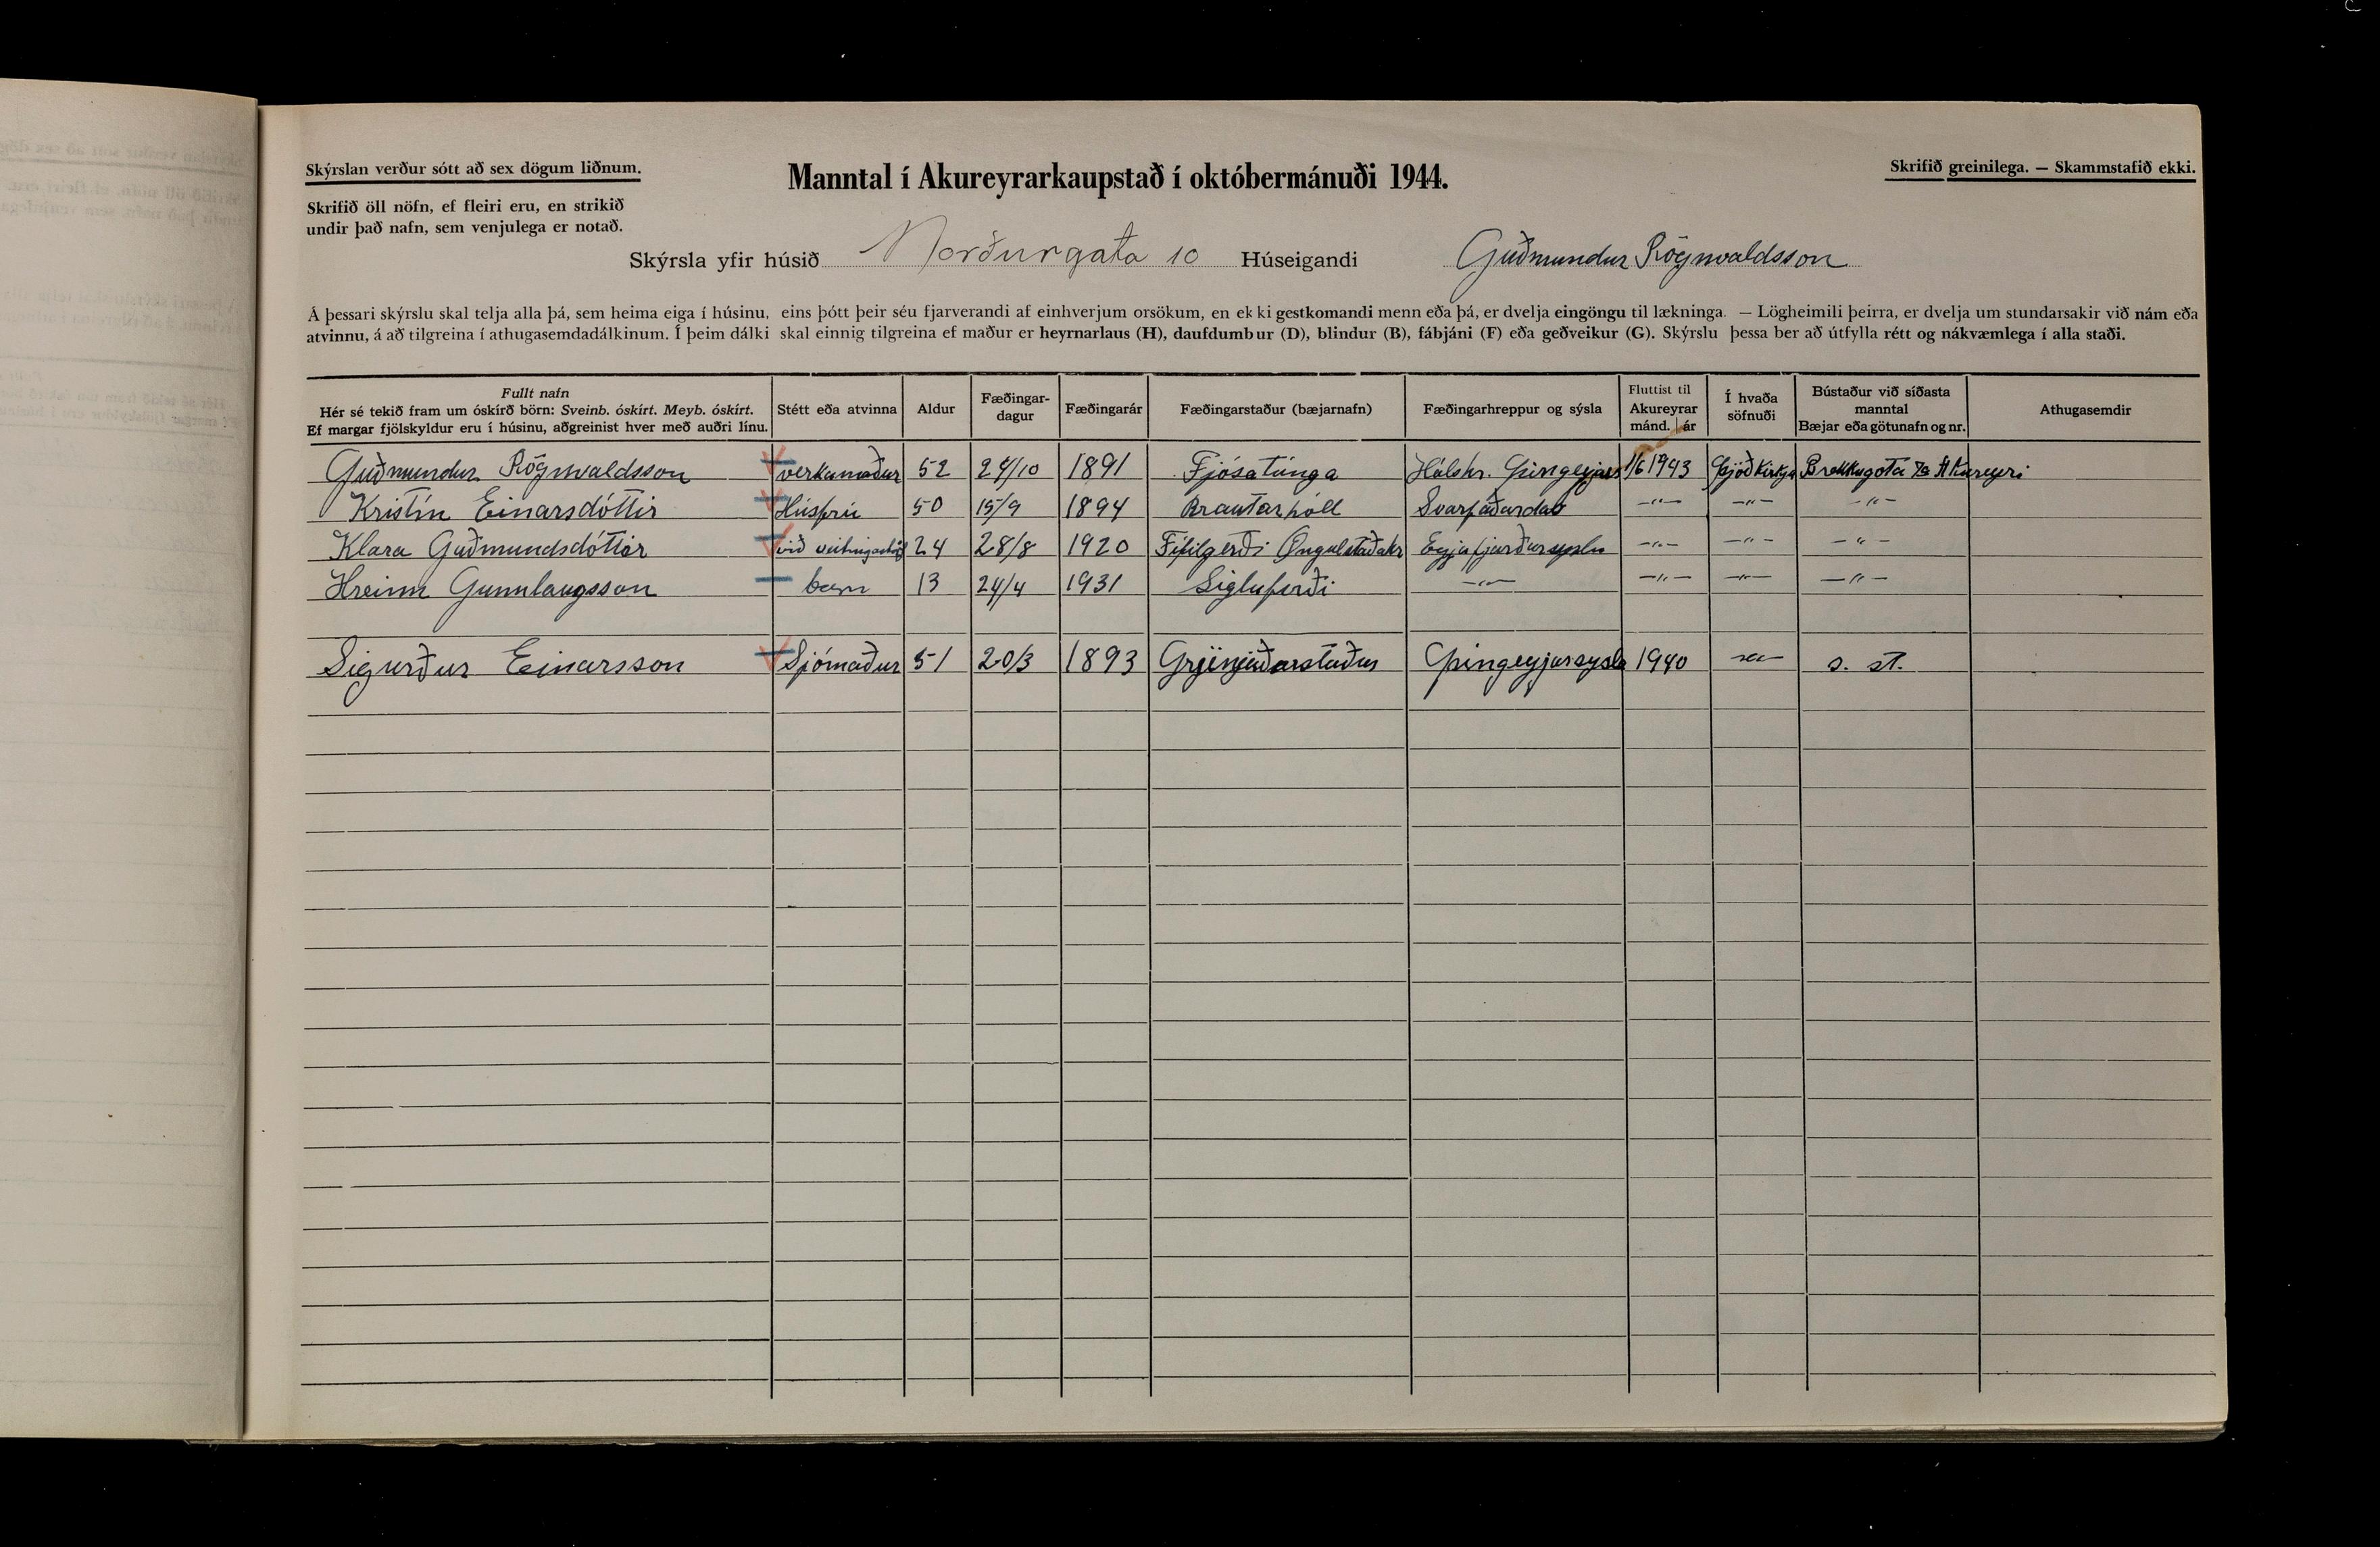 Skýrslan verður sótt að sex dögum liðnum.
Manntal í Akureyrarkaupstað í októbermánuði 1944.
Skrifið greinilega. — Skammstafið ekki.
Skrifið öll nöfn, ef fleiri eru, en strikið
undir það nafn, sem venjulega er notað.
Skýrsla yfir húsið Norðurgata 10 Húseigandi Guðmundur Rögnvaldsson
Á þessari skýrslu skal telja alla þá, sem heima eiga í húsinu, eins þótt þeir séu fjarverandi af einhverjum orsökum, en ekki gestkomandi menn eða þá, er dvelja eingöngu til lækninga. — Lögheimili þeirra, er dvelja um stundarsakir við nám eða
atvinnu, á að tilgreina í athugasemdadálkinum. Í þeim dálki skal einnig tilgreina ef maður er heyrnarlaus (H), daufdumbur (D), blindur (B), fábjáni (F) eða geðveikur (G). Skýrslu þessa ber að útfylla rétt og nákvæmlega í alla staði.
Fullt nafn
Hér sé tekið fram um óskírð börn: Sveinb. óskírt. Meyb. óskírt.
Ef margar fjölskyldur eru í húsinu, aðgreinist hver með auðri línu.
Stétt eða atvinna
Aldur
Fæðingar-
dagur
Fæðingarár
Fæðingarstaður (bæjarnafn)
Fæðingarhreppur og sýsla
Fluttist til
Akureyrar
mánd. ár
Í hvaða
söfnuði
Bústaður við síðasta
manntal
Bæjar eða götunafn og nr.
Athugasemdir
Guðmundur Rögnvaldsson verkamaður 52 24/10 1891 Fjósatúnga Hálshr. Þingeyjars 1/6 1943 Þjóðkirkja Brekkugota 7a Akureyri
Kristín Einarsdóttir Húsfrú 50 15/9 1894 Brautarhóll Svarfaðardal —"— —"— —"—
Klara Guðmundsdóttir við 24 28/8 1920 Fífilgerði Öngulstaðahr Eyjafjarðarsyslu —"— —"— —"—
Hreinn Gunnlaugsson barn 13 24/4 1931 Sigluferði —"— —"— —"— —"—
Sigurður Einarsson Sjómaður 51 20/3 1893 Þingeyjarsysla 1940 —"— s. st.